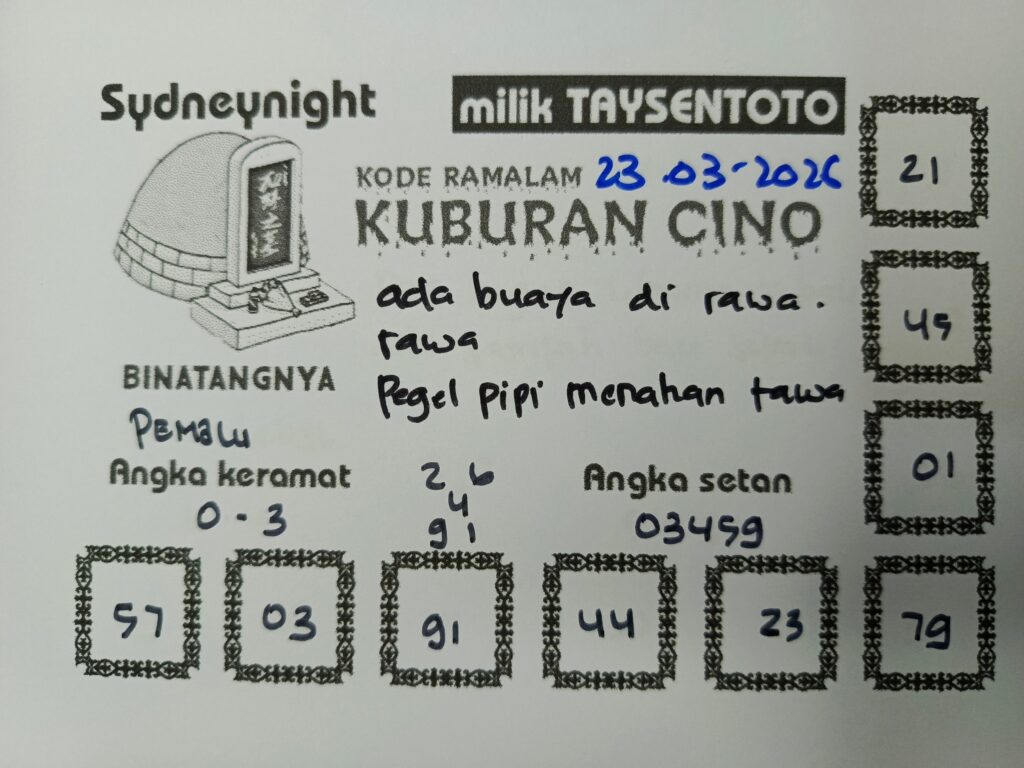 Sydneynight
milik TAYSENTOTO
KODE RAMALAM 23.03-2026
KUBURAN CINO
ada buaya di rawa.
rawa
Pegel pipi menahan tawa
BINATANGNYA
PEMALU
Angka keramat
0-3
2 6
4
91
Angka setan
03459
21
45
01
57
03
91
44
23
79